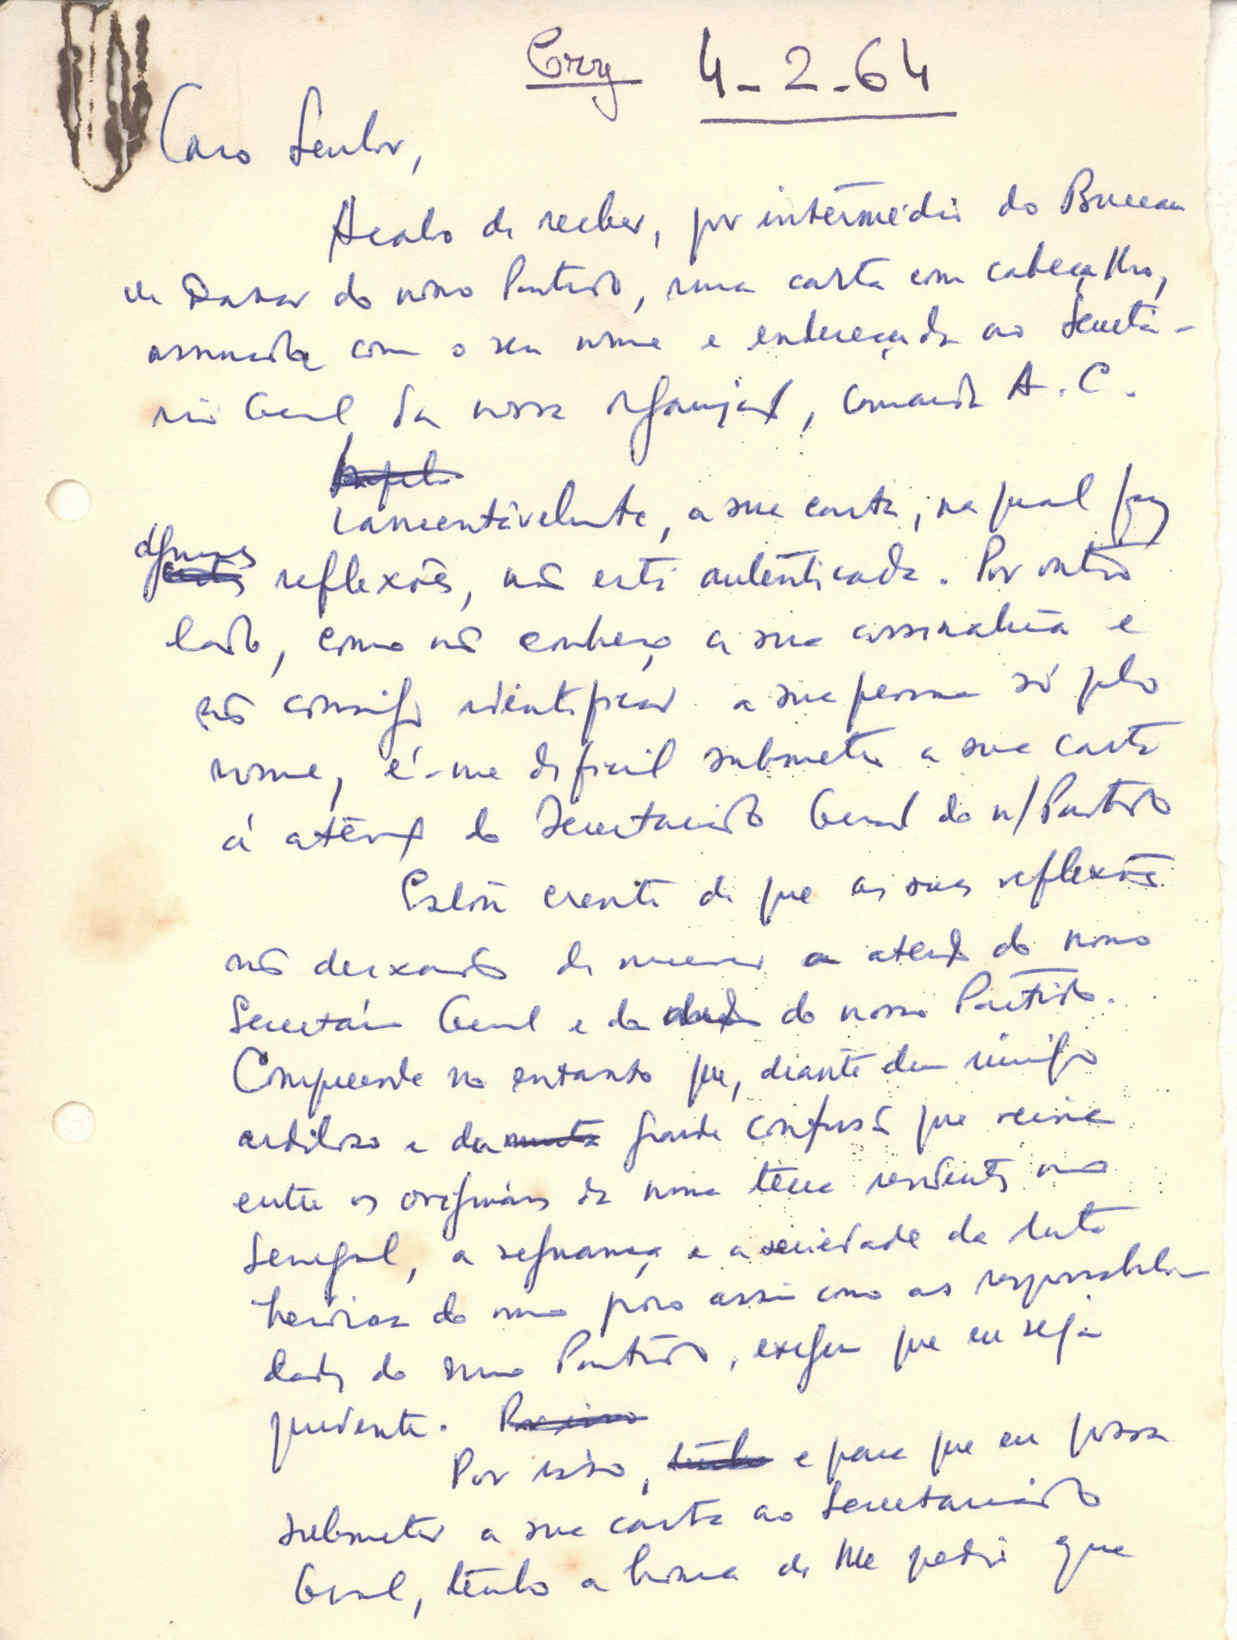 Cry 4-2-64
Caro Senhor,
Acabo de receber, por intermédio do Bureau
de Dakar do nosso Partido, uma carta com cabeçalho,
assinada com o seu nome e endereçada ao Secretá-
rio Geral da nossa organização, Camarada A. C.
Lamentavelmente, a sua carta, na qual faz
algumas reflexões, não está autênticada. Por outro
lado, como não conheço a sua assinatura e
não consigo identificar a sua pessoa só pelo
nome, é-me difícil submeter a sua carta
à atenção do Secretariado Geral do n/Partido
Estou crente de que as suas reflexões
não deixarão de merecer a atenção do nosso
Secretário Geral e da do nosso Partido.
Compreende no entanto que, diante dum inimigo
ardiloso e da grande confusão que reina
entre os originários da nossa terra residentes no
Senegal, a segurança e a seriedade da luta
heróica do nosso povo assim como as responsabili-
dades do nosso Partido, exigem que eu seja
prudente.
Por isso, e para que eu possa
submeter a sua carta ao Secretariado
Geral, tenho a honra de lhe pedir que